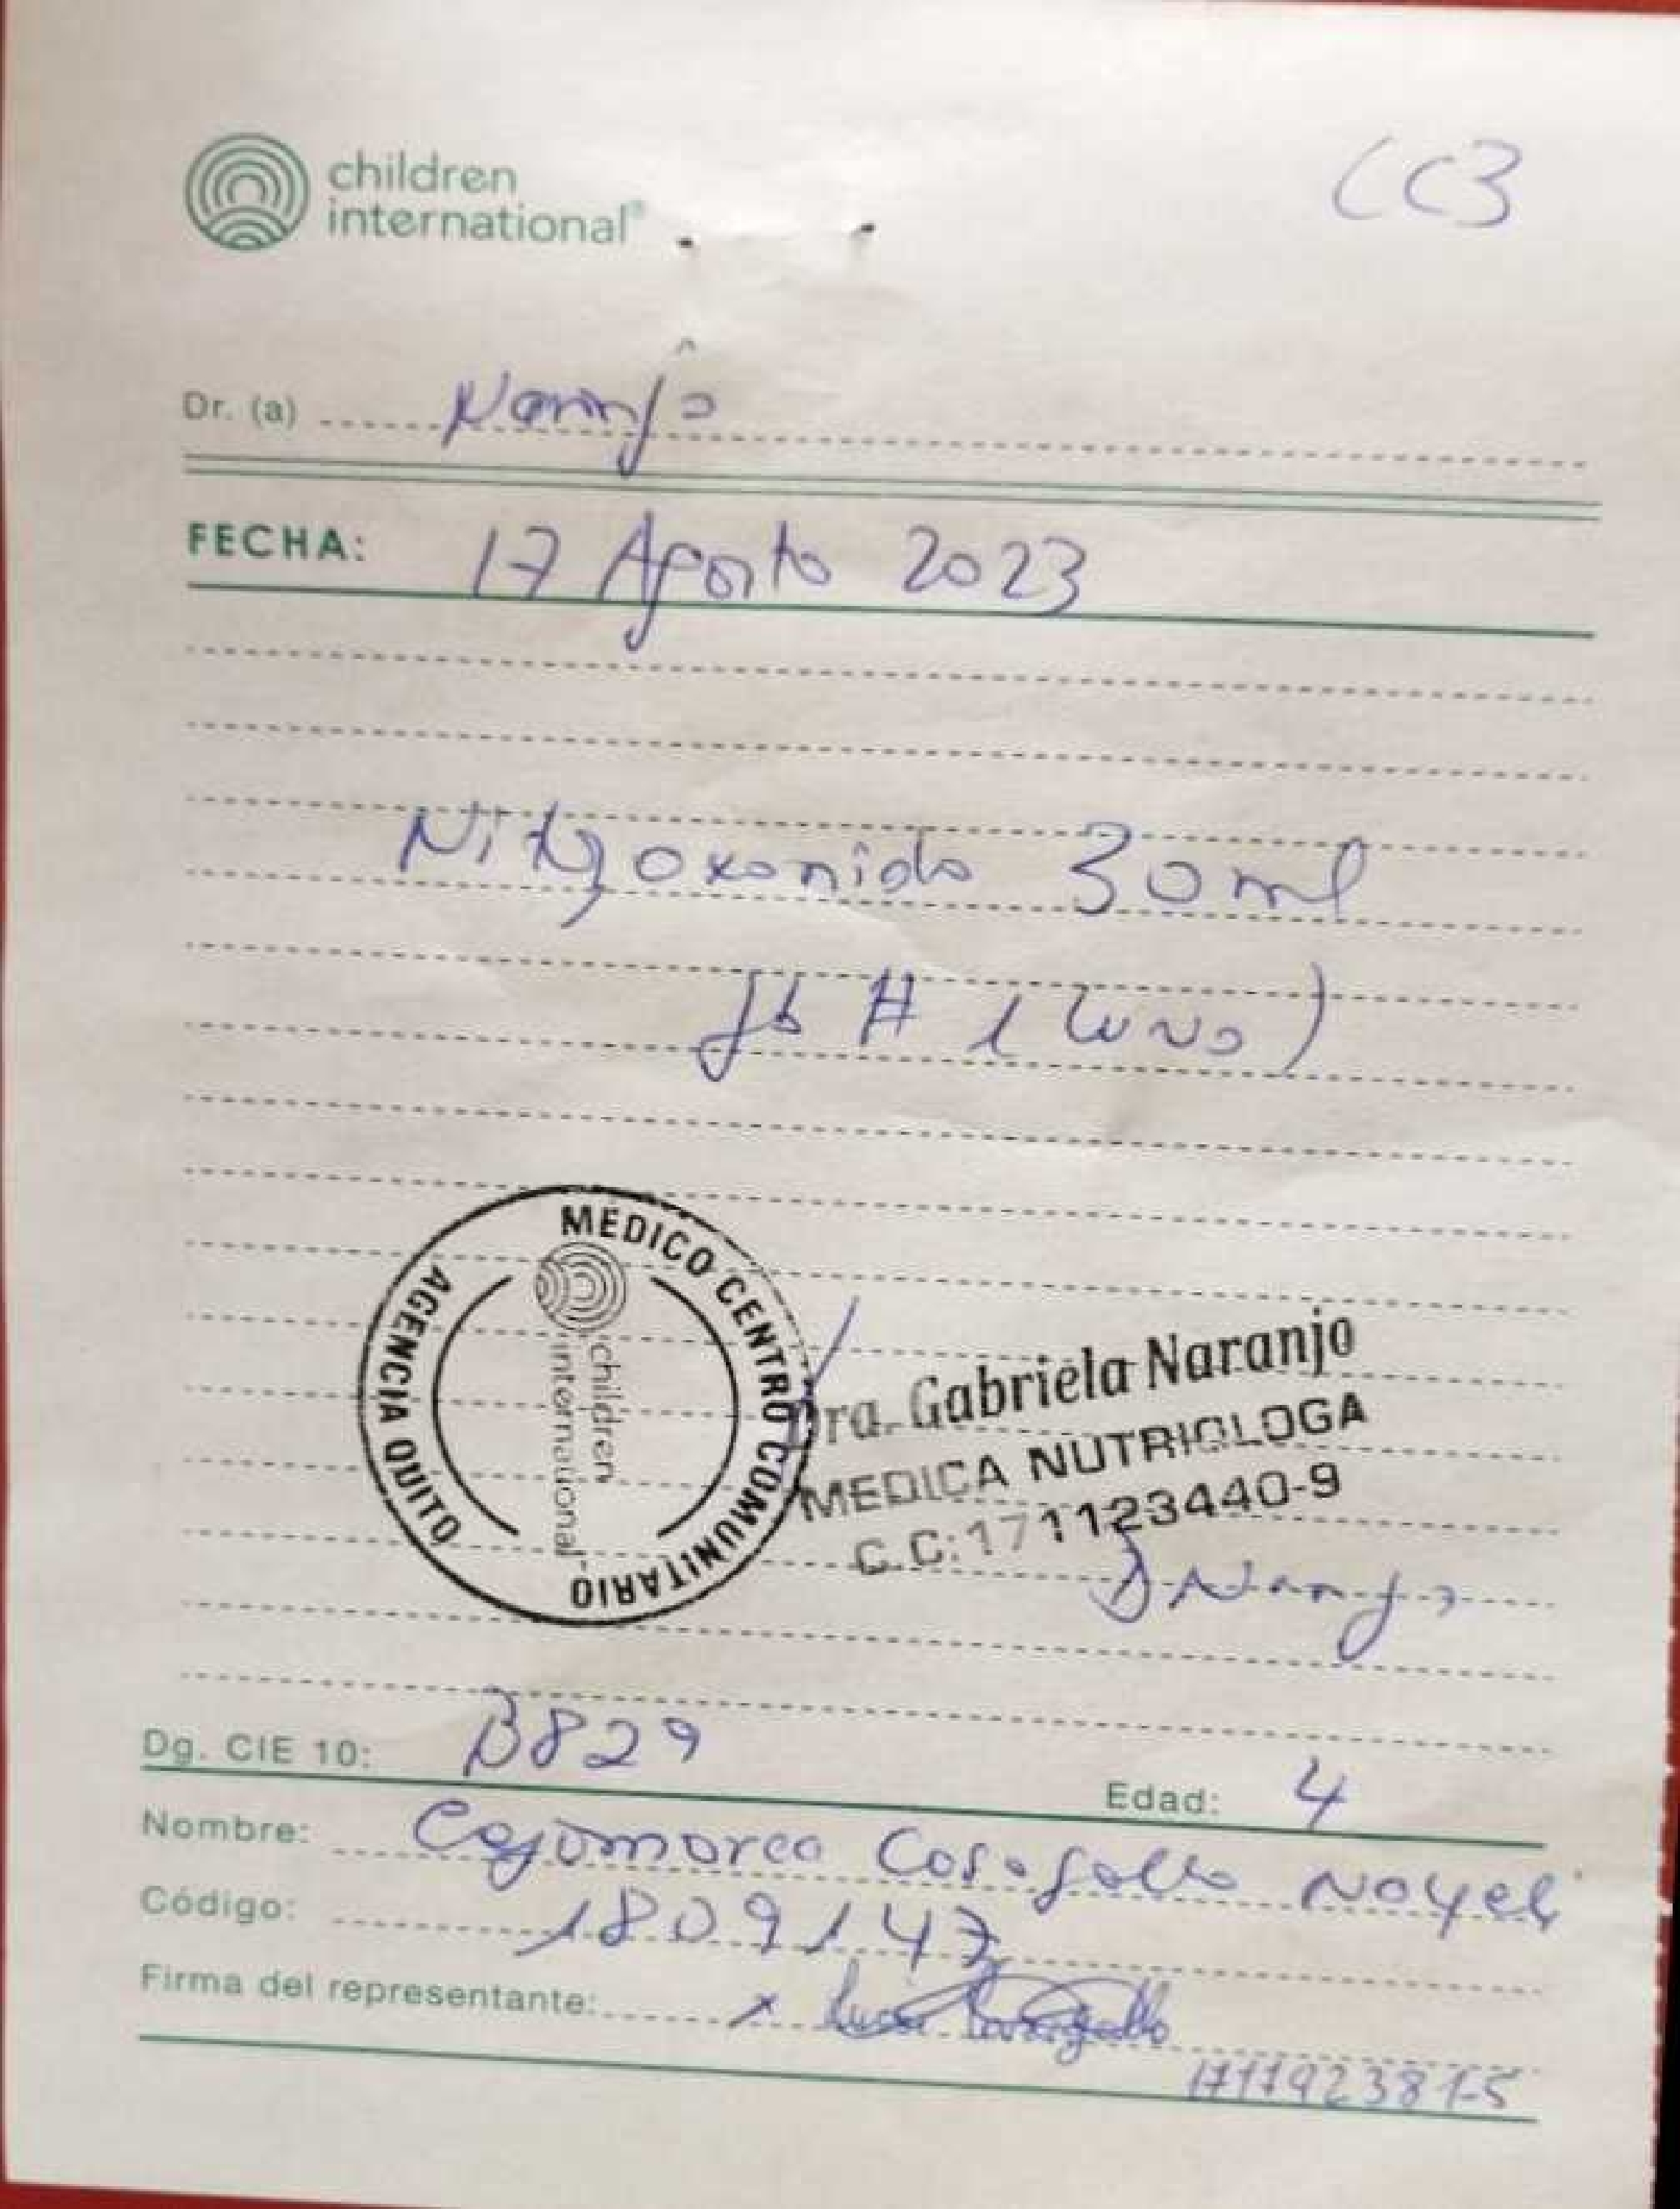 children
international®
CC3
Dr. (a) Naranjo
FECHA: 17 Agosto 2023
Nitazoxanida 30 ml
fb # 1 (uno)
MEDICO CENTRO COMUNITARIO
AGENCIA QUITO
children
international
Dra. Gabriela Naranjo
MEDICA NUTRIOLOGA
C.C: 171123440-9
Dg. CIE 10: B829
Edad: 4
Nombre: Cajamarca Casagallo Nayeli
Código: 1809147
Firma del representante: x